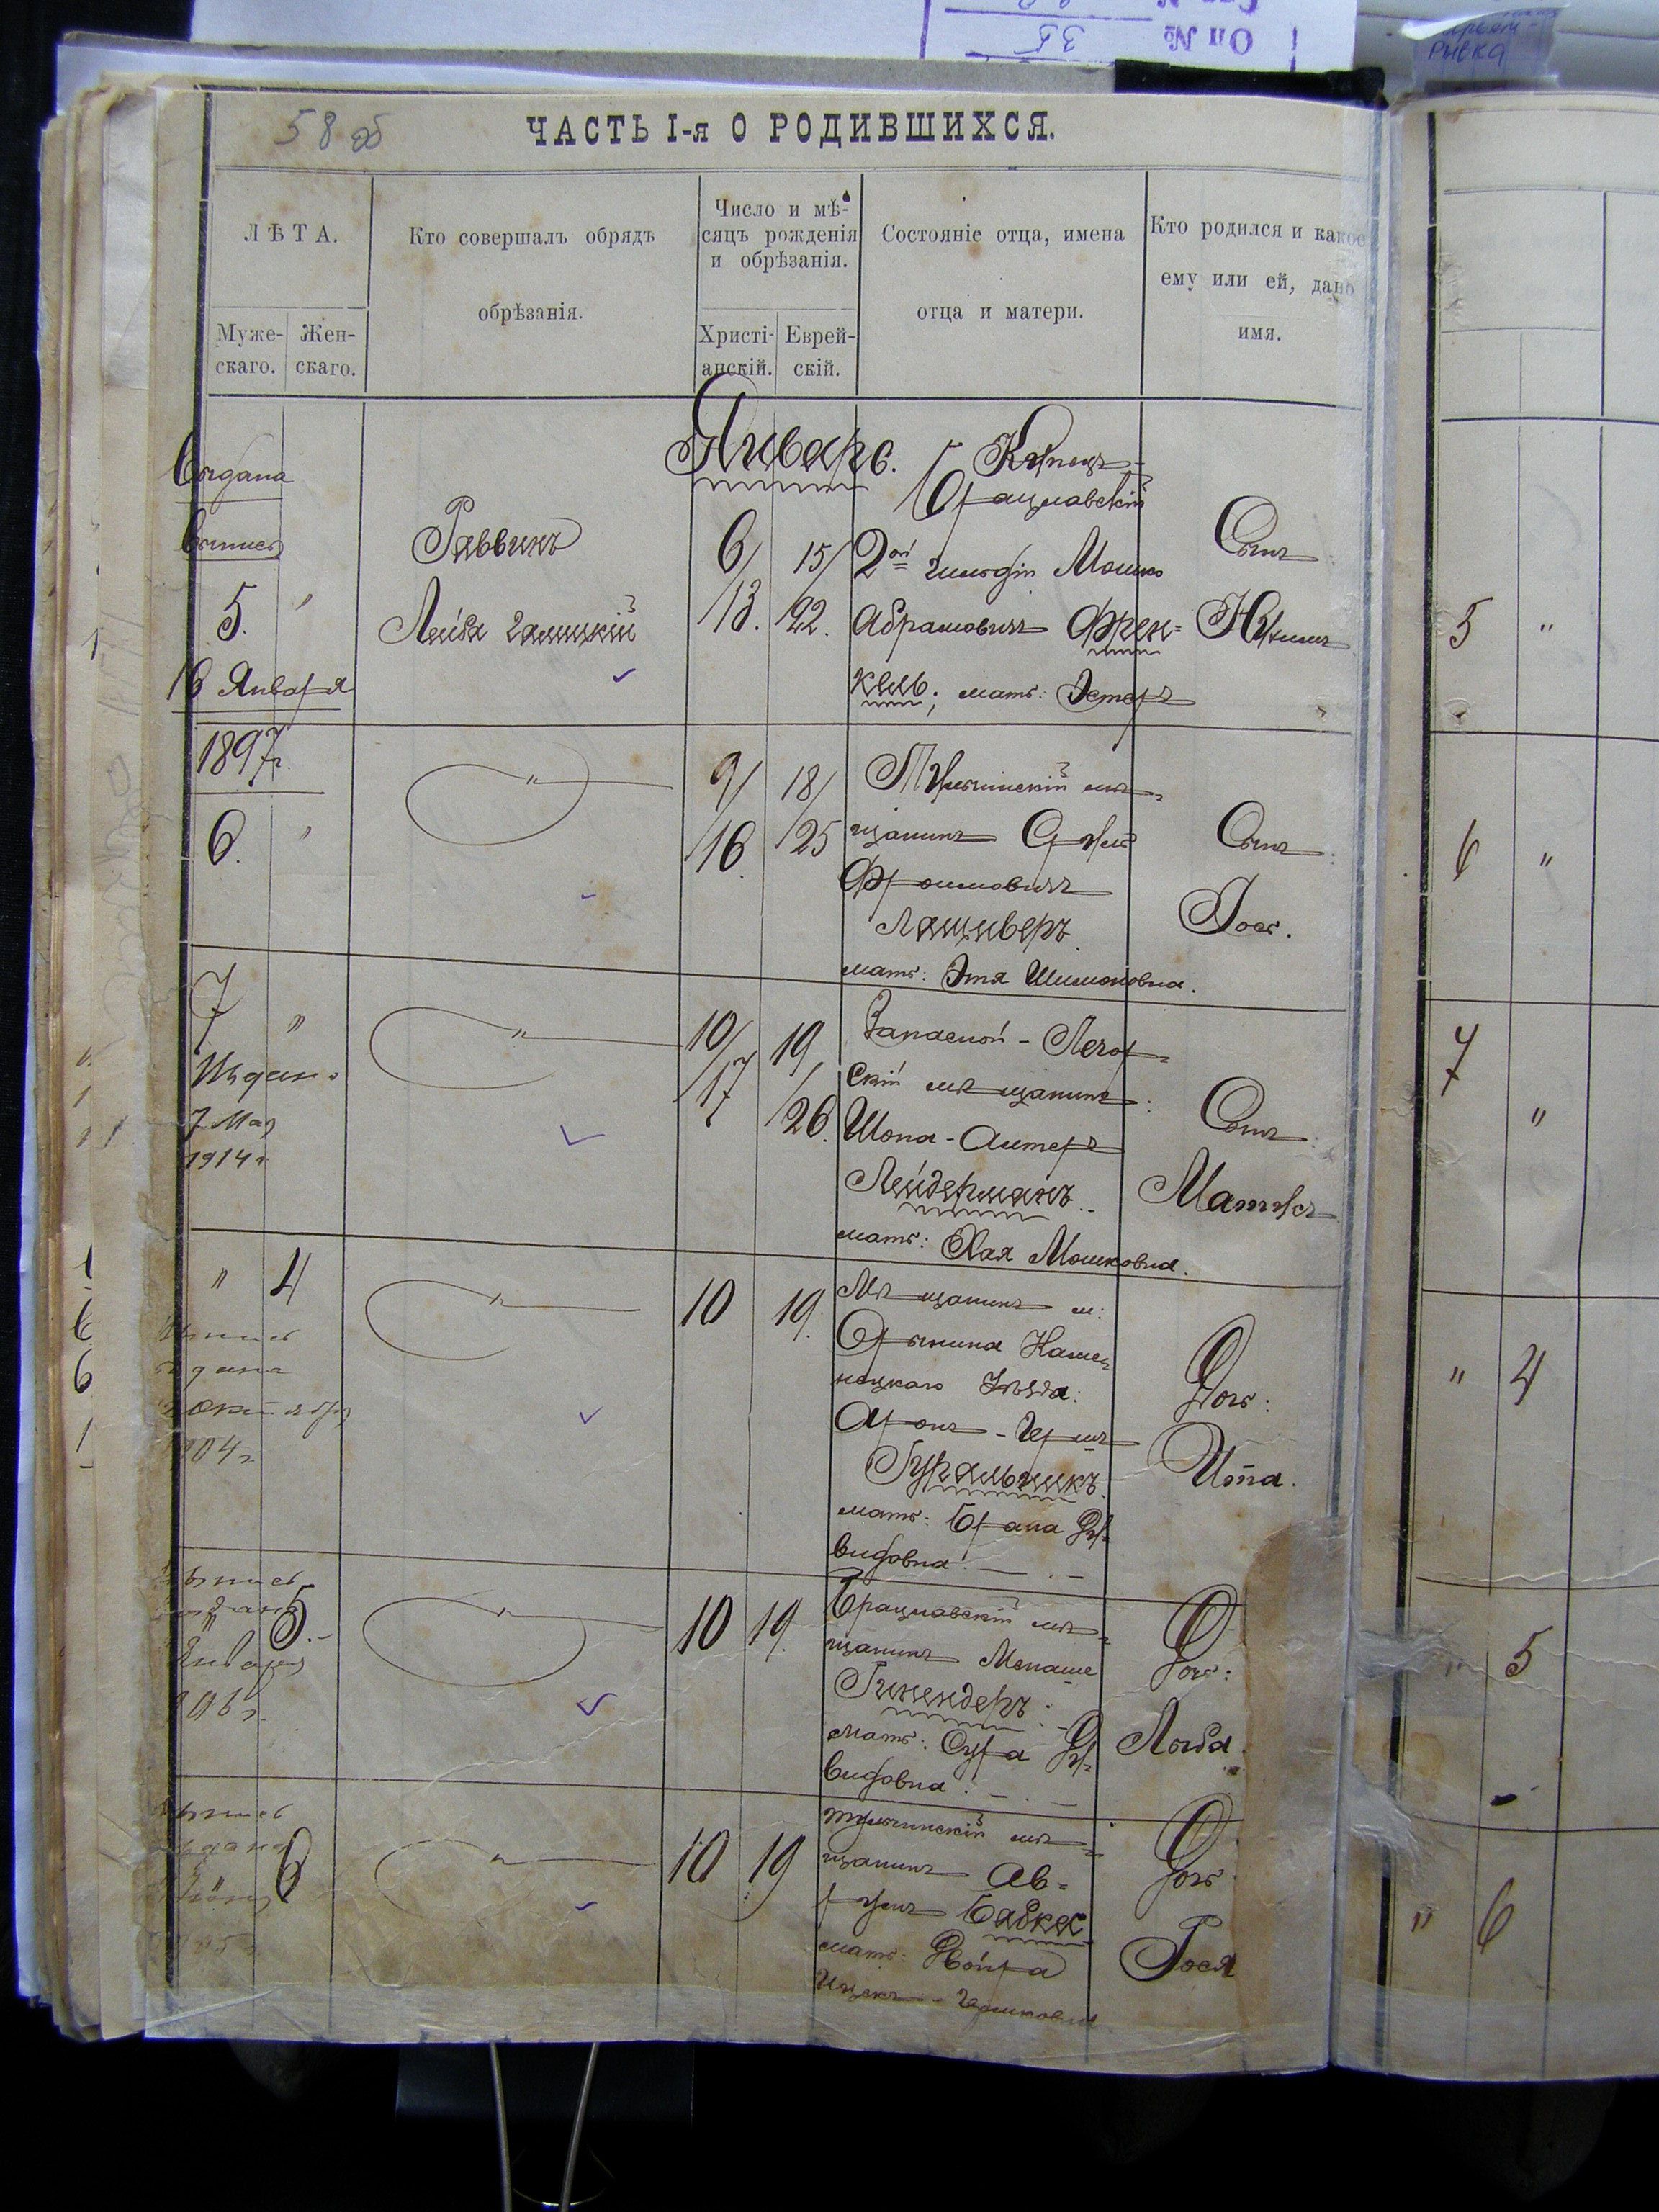 Оп № 35
РИВКА
58 об
ЧАСТЬ I-я О РОДИВШИХСЯ.
ЛѢТА.
Муже-
скаго.
Жен-
скаго.
Кто совершалъ обрядъ
обрѣзанія.
Число и мѣ-
сяцъ рожденія
и обрѣзанія.
Христі-
анскій.
Еврей-
скій.
Состояніе отца, имена
отца и матери.
Кто родился и какое
ему или ей, дано
имя.
Январь.
Выдана
выпись
5. "
16 Января
1897 г.
Раввинъ
Лейба Галицкій
6/13. 15/22.
Купецъ
Брацлавскій
2ой гильдіи Мошко
Абрамовичъ Френ=
кель; мать: Эстеръ
Сынъ
Нухимъ
5 "
6. "
"
9/16. 18/25
Тульчинскій мѣ=
щанинъ Сруль
Фроимовичъ
Лащиверъ.
мать: Этя Шимоновна.
Сынъ:
Іось.
6 "
7 "
7 Мая
1914 г.
"
10/17 19/26.
Запасной - Печор=
скій мѣщанинъ:
Шопа-Алтеръ
Лейдерманъ.
мать: Хая Мошковна.
Сынъ:
Матусъ
7 "
" 4
выпись
выдана
октября
1904 г.
"
10 19.
Мѣщанинъ м:
Орынина Каме=
нецкаго Уѣзда:
Аронъ-Гершъ
Гуральникъ.
мать: Брана Ду=
видовна.
Дочь:
Ита.
" 4
выпись
выдана
" 5.
Января
1906 г.
"
10 19.
Брацлавскій мѣ=
щанинъ Менаше
Гинендеръ.
мать: Сура Ду=
видовна.
Дочь:
Люба.
" 5
выпись
выдана
6
"
10 19
Тульчинскій мѣ=
щанинъ Ав=
румъ Бабкес
мать: Двойра
Ицекъ-Гершковна
Дочь
Рося
" 6